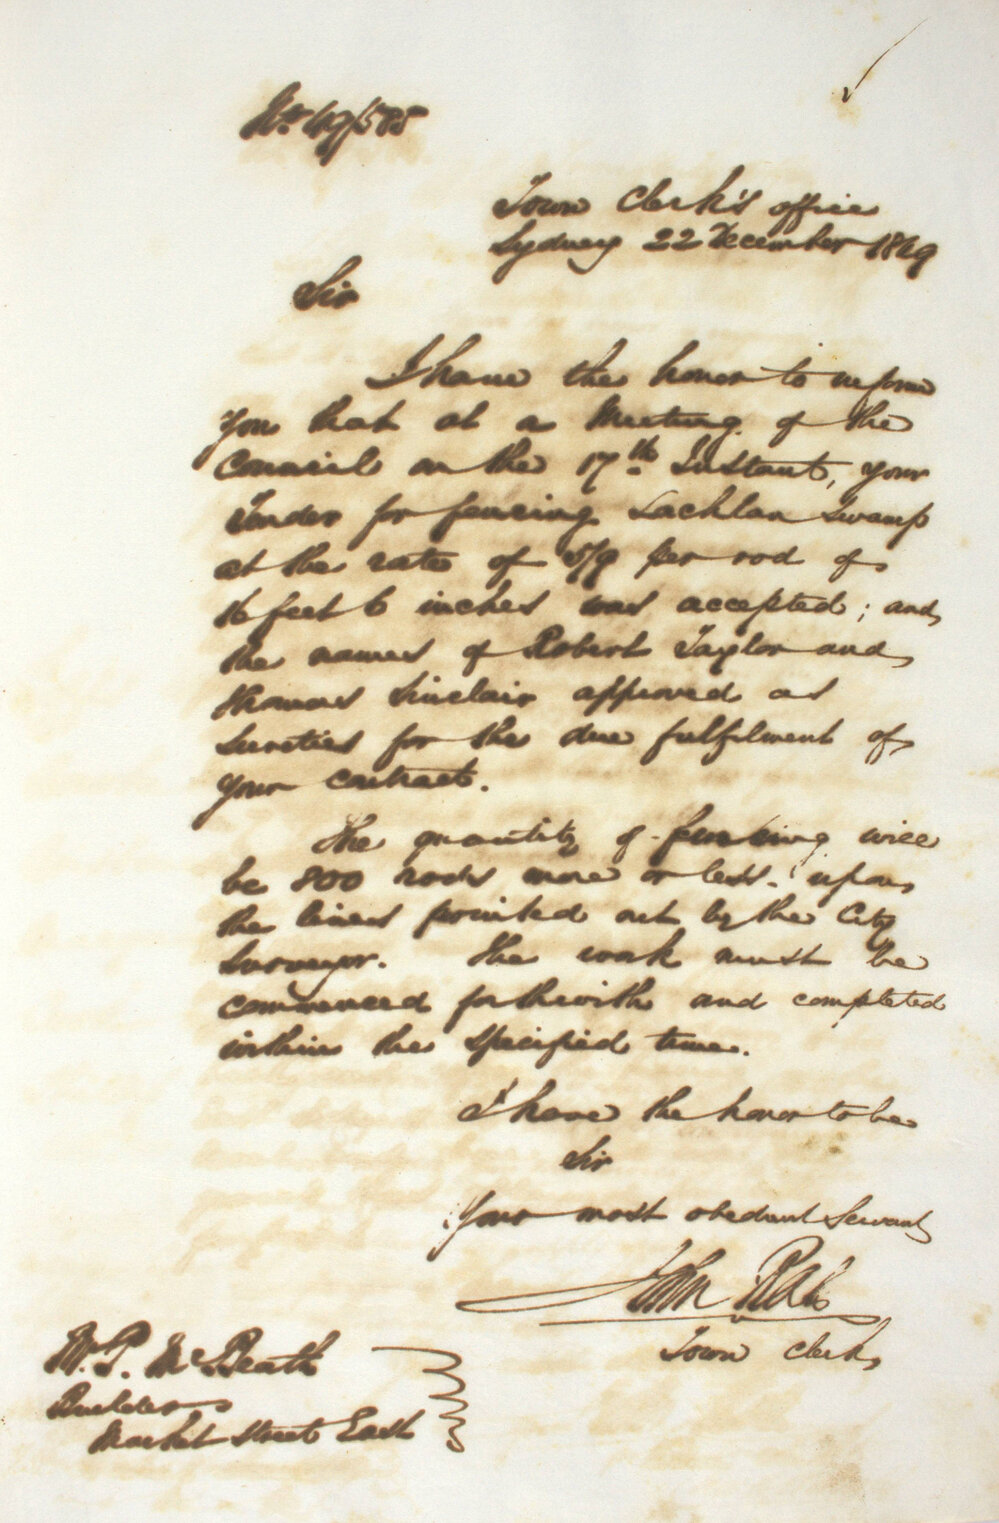 No 49/585
Town Clerk's office
Sydney 22 December 1849
Sir
I have the honor to inform
you that at a Meeting of the
Council on the 17th Instant, your
Tender for fencing Lachlan Swamp
at the rate of 5/9 per rod of
16 feet 6 inches was accepted; and
the names of Robert Taylor and
Thomas Sinclair approved as
Sureties for the due fulfilment of
your contract.
The quantity of fencing will
be 800 rods more or less. upon
the lines pointed out by the City
Surveyor. The work must be
commenced forthwith and completed
within the specified time.
I have the honor to be
Sir
Your most obedient Servant
John Rae
Town Clerk
Mc Beath
Builder
Market Street East